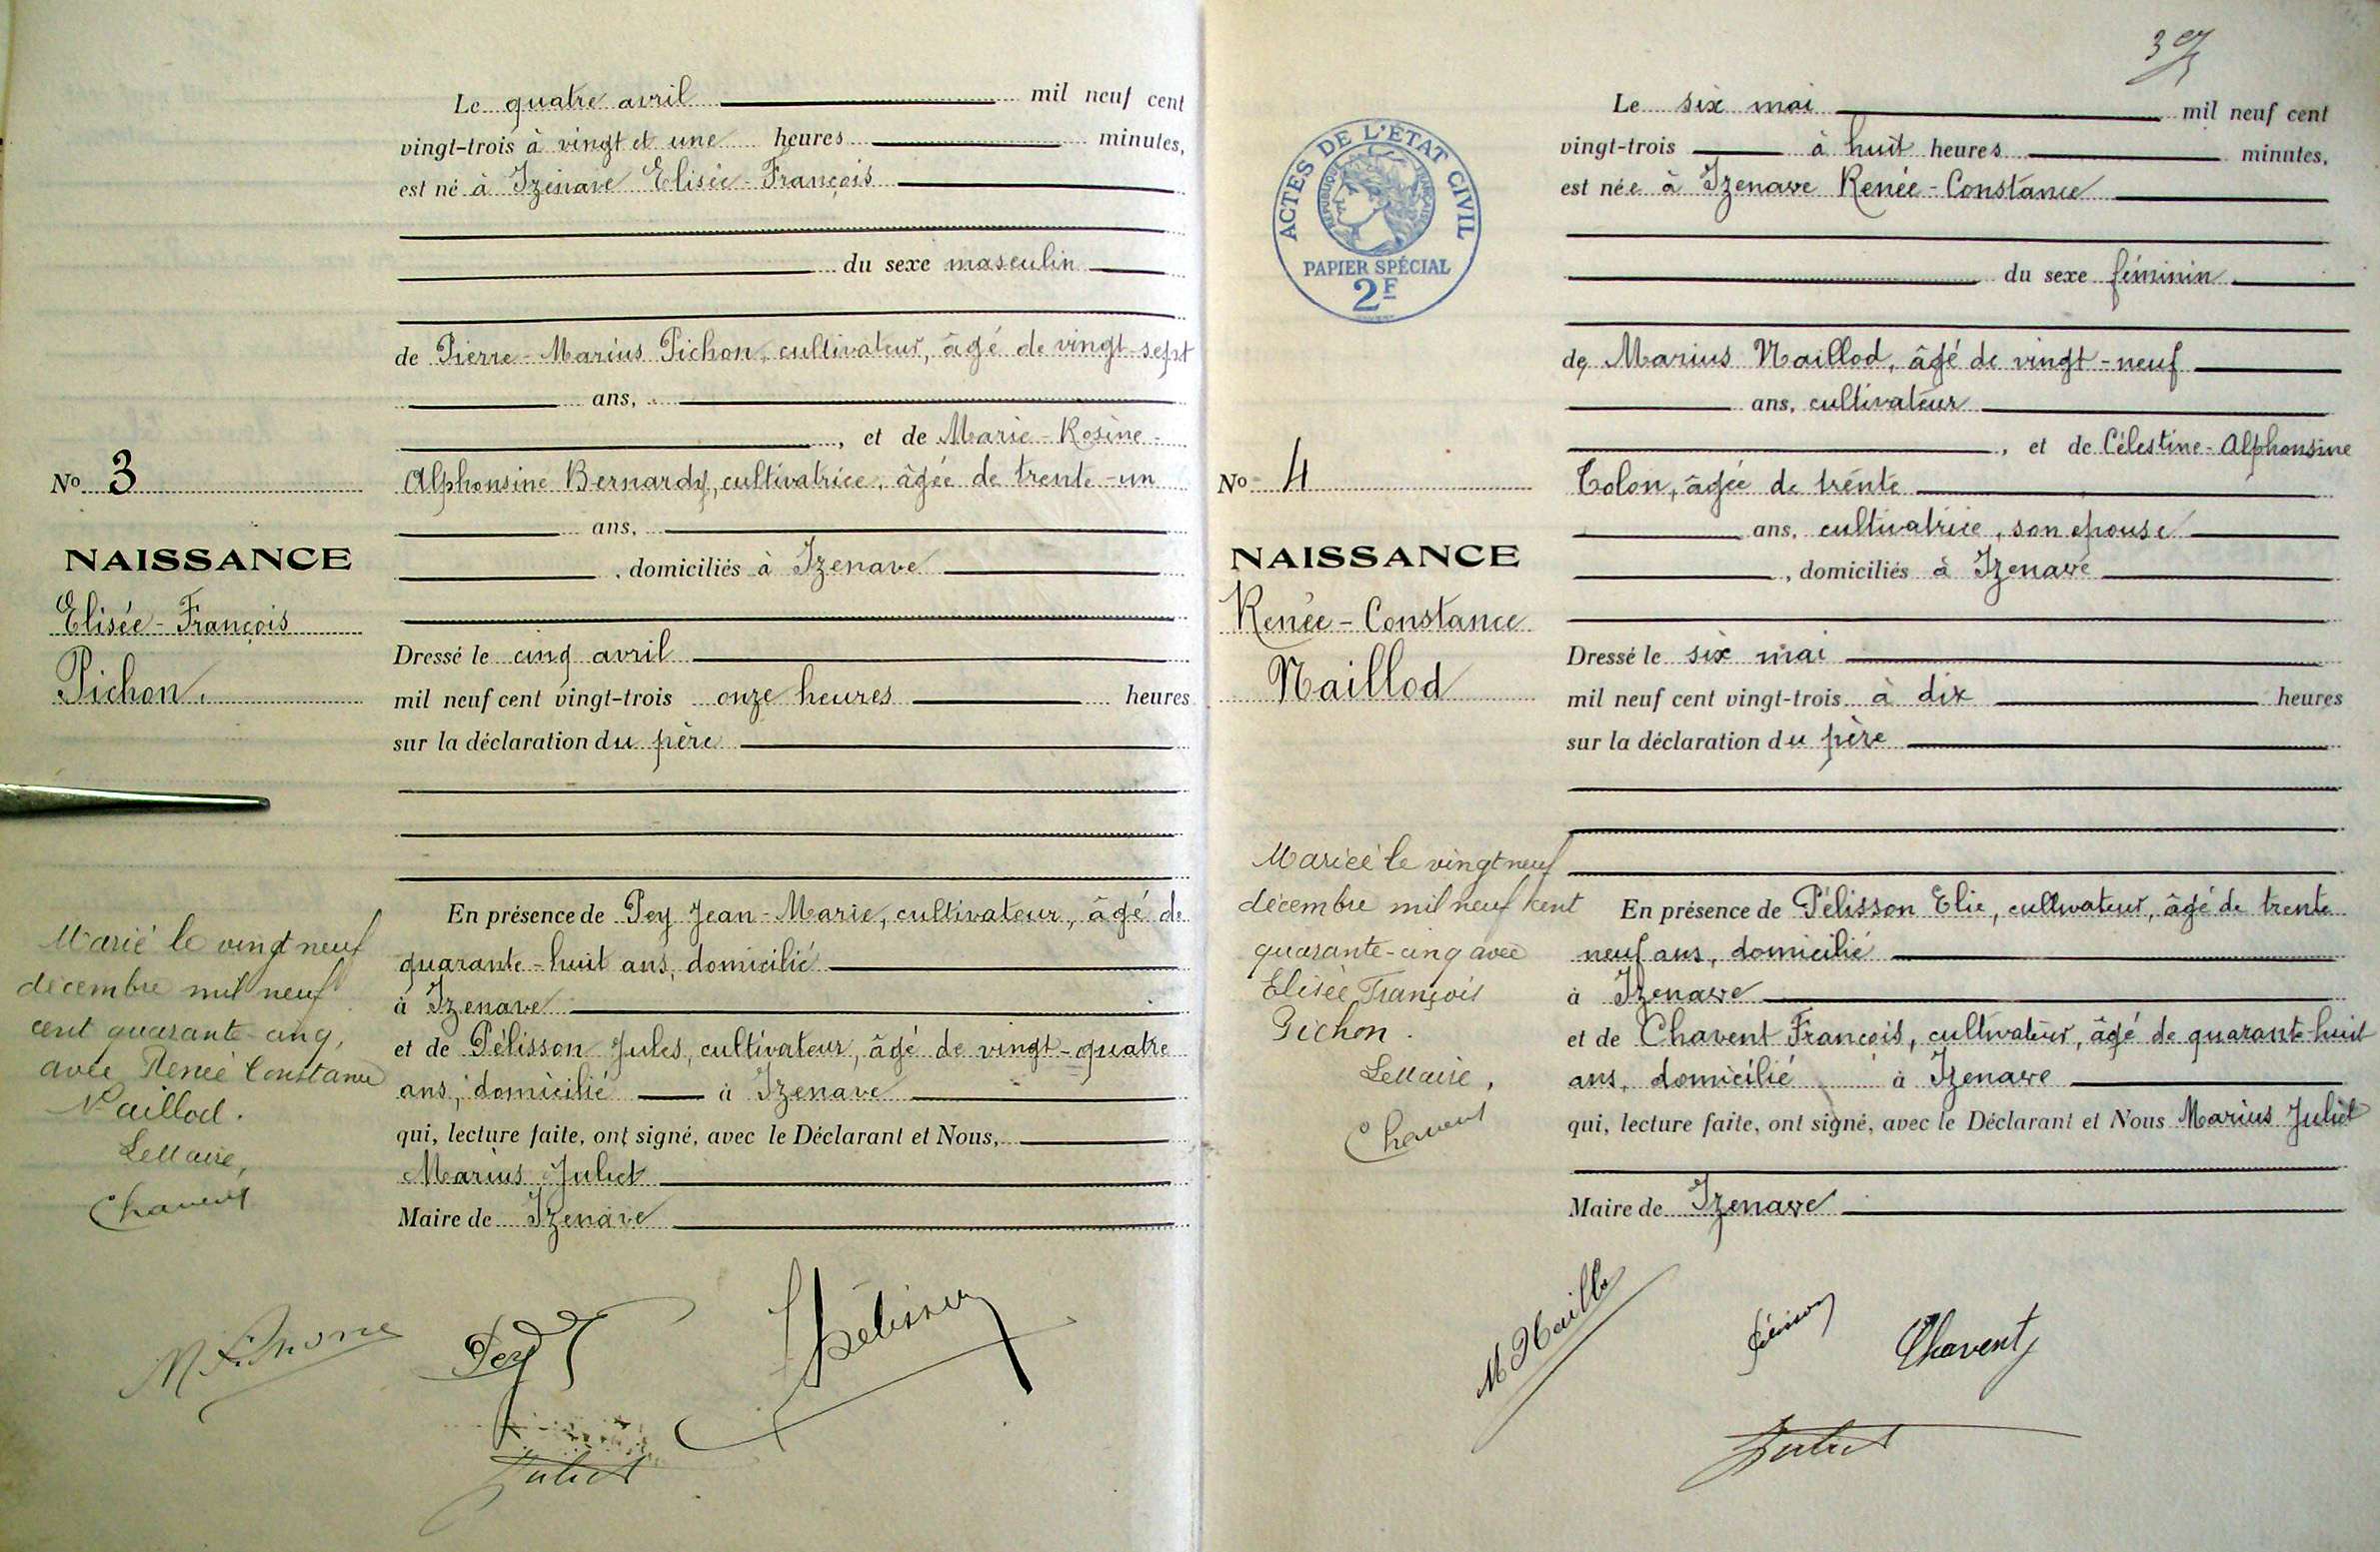 Le quatre avril mil neuf cent
vingt-trois à vingt et une heures minutes,
est né à Izenave Elisée-François
du sexe masculin
de Pierre-Marius Pichon, cultivateur, âgé de vingt-sept
ans,
, et de Marie-Rosine-
Alphonsine Bernardy, cultivatrice, âgée de trente-un
ans,
, domiciliés à Izenave
Dressé le cinq avril
mil neuf cent vingt-trois onze heures heures
sur la déclaration du père
En présence de Pey Jean-Marie, cultivateur, âgé de
quarante-huit ans, domicilié
à Izenave
et de Pélisson Jules, cultivateur, âgé de vingt-quatre
ans, domicilié à Izenave
qui, lecture faite, ont signé, avec le Déclarant et Nous,
Marius Juliet
Maire de Izenave
No 3
NAISSANCE
Elisée-François
Pichon.
Marié le vingt neuf
décembre mil neuf
cent quarante-cinq,
avec Renée Constance
Naillod.
Le Maire,
Chavent
Pey
Pélisson
Juliet
ACTES DE L'ÉTAT CIVIL
RÉPUBLIQUE FRANÇAISE
PAPIER SPÉCIAL
2F
Le six mai mil neuf cent
vingt-trois à huit heures minutes,
est née à Izenave Renée-Constance
du sexe féminin
de Marius Naillod, âgé de vingt-neuf
ans, cultivateur
, et de Célestine-Alphonsine
Colon, âgée de trente
ans, cultivatrice, son épouse
, domiciliés à Izenave
Dressé le six mai
mil neuf cent vingt-trois à dix heures
sur la déclaration du père
En présence de Pélisson Elie, cultivateur, âgé de trente
neuf ans, domicilié
à Izenave
et de Chavent François, cultivateur, âgé de quarante-huit
ans, domicilié à Izenave
qui, lecture faite, ont signé, avec le Déclarant et Nous Marius Juliet
Maire de Izenave
No 4
NAISSANCE
Renée-Constance
Naillod
Mariée le vingt neuf
décembre mil neuf cent
quarante-cinq avec
Elisée François
Pichon.
Le Maire,
Chavent
Chavent
Juliet